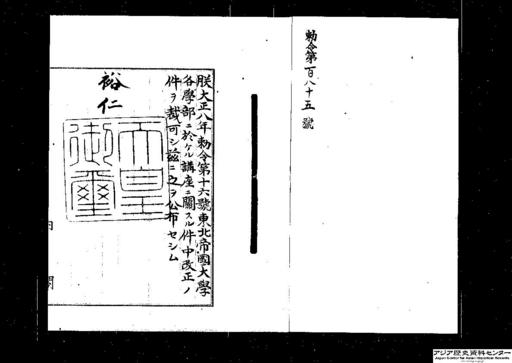 勅令第百八十五號
朕大正八年勅令第十六號東北帝國大學
各學部ニ於ケル講座ニ關スル件中改正ノ
件ヲ裁可シ茲ニ之ヲ公布セシム
裕仁
天皇御璽
内閣
アジア歴史資料センター
Japan Center for Asian Historical Records